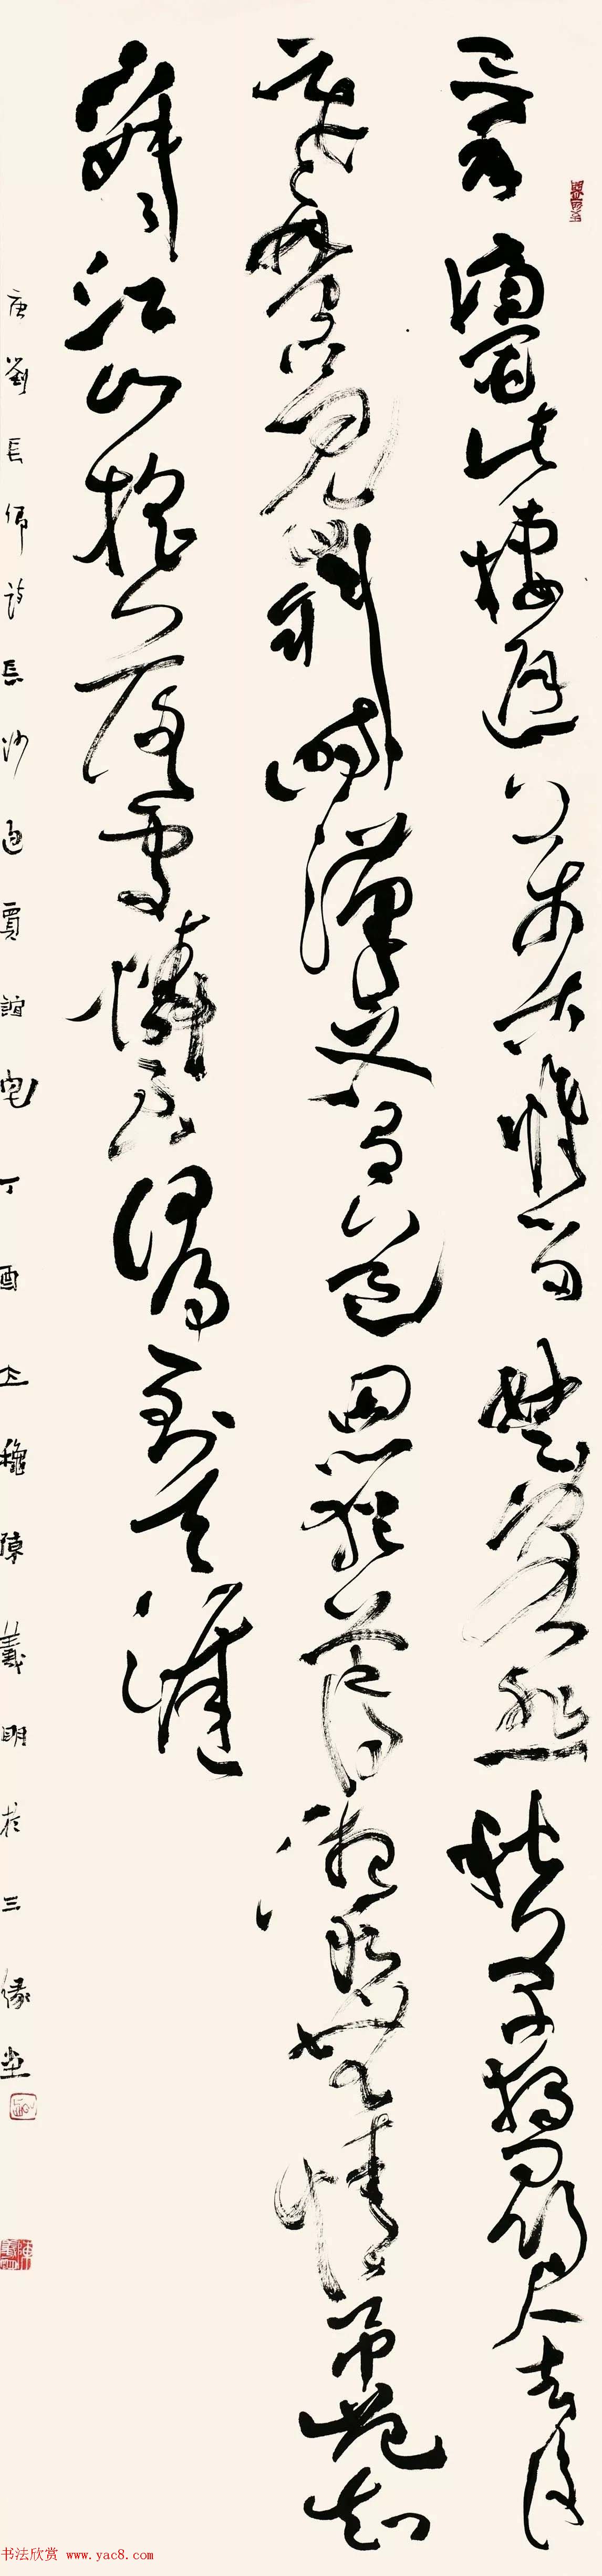 三年謫宦此棲遲萬古惟留楚客悲秋草獨尋人去後
寒林空見日斜時漢文有道恩猶薄湘水無情吊豈知
寂寂江山搖落處憐君何事到天涯
唐劉長卿詩長沙過賈誼宅丁酉立穐陳羲明於三緣堂
书法欣赏 www.yac8.com